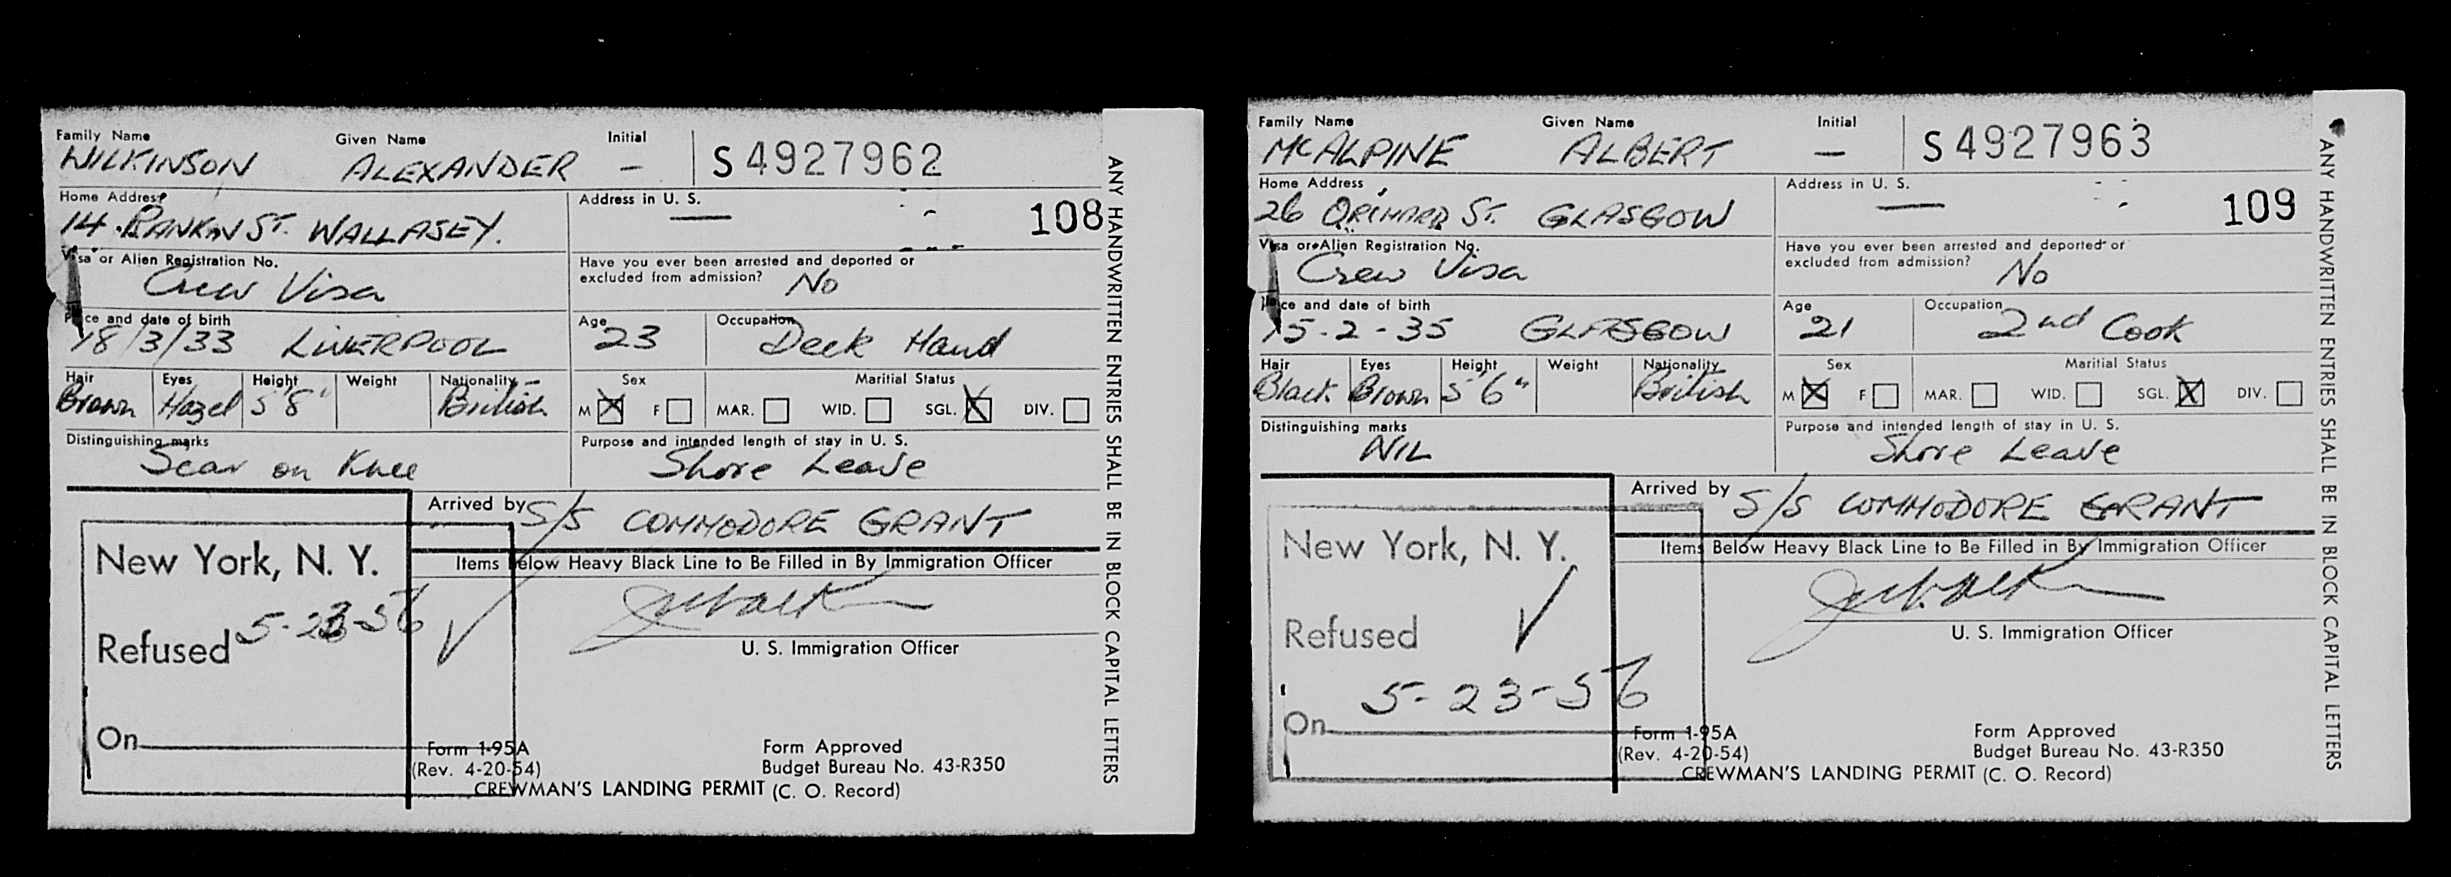 Family Name Given Name Initial
WILKINSON ALEXANDER — S 4927962
Home Address Address in U. S.
14 RANKIN ST. WALLASEY. — 108
Visa or Alien Registration No. Have you ever been arrested and deported or
excluded from admission?
Crew Visa No
Place and date of birth Age Occupation
18/3/33 LIVERPOOL 23 Deck Hand
Hair Eyes Height Weight Nationality Sex Maritial Status
Brown Hazel 5 8" British M X F MAR. WID. SGL. X DIV.
Distinguishing marks Purpose and intended length of stay in U. S.
Scar on Knee Shore Leave
Arrived by S/S COMMODORE GRANT
Items Below Heavy Black Line to Be Filled in By Immigration Officer
New York, N. Y.
Refused 5-23-56
On
U. S. Immigration Officer
Form I-95A
(Rev. 4-20-54)
Form Approved
Budget Bureau No. 43-R350
CREWMAN'S LANDING PERMIT (C. O. Record)
ANY HANDWRITTEN ENTRIES SHALL BE IN BLOCK CAPITAL LETTERS
Family Name Given Name Initial
McALPINE ALBERT — S 4927963
Home Address Address in U. S.
26 ORCHARD ST. GLASGOW — 109
Visa or Alien Registration No. Have you ever been arrested and deported or
excluded from admission?
Crew Visa No
Place and date of birth Age Occupation
15-2-35 GLASGOW 21 2nd Cook
Hair Eyes Height Weight Nationality Sex Maritial Status
Black Brown 5 6" British M X F MAR. WID. SGL. X DIV.
Distinguishing marks Purpose and intended length of stay in U. S.
NIL Shore Leave
Arrived by S/S COMMODORE GRANT
Items Below Heavy Black Line to Be Filled in By Immigration Officer
New York, N. Y.
Refused
5-23-56
On
U. S. Immigration Officer
Form I-95A
(Rev. 4-20-54)
Form Approved
Budget Bureau No. 43-R350
CREWMAN'S LANDING PERMIT (C. O. Record)
ANY HANDWRITTEN ENTRIES SHALL BE IN BLOCK CAPITAL LETTERS